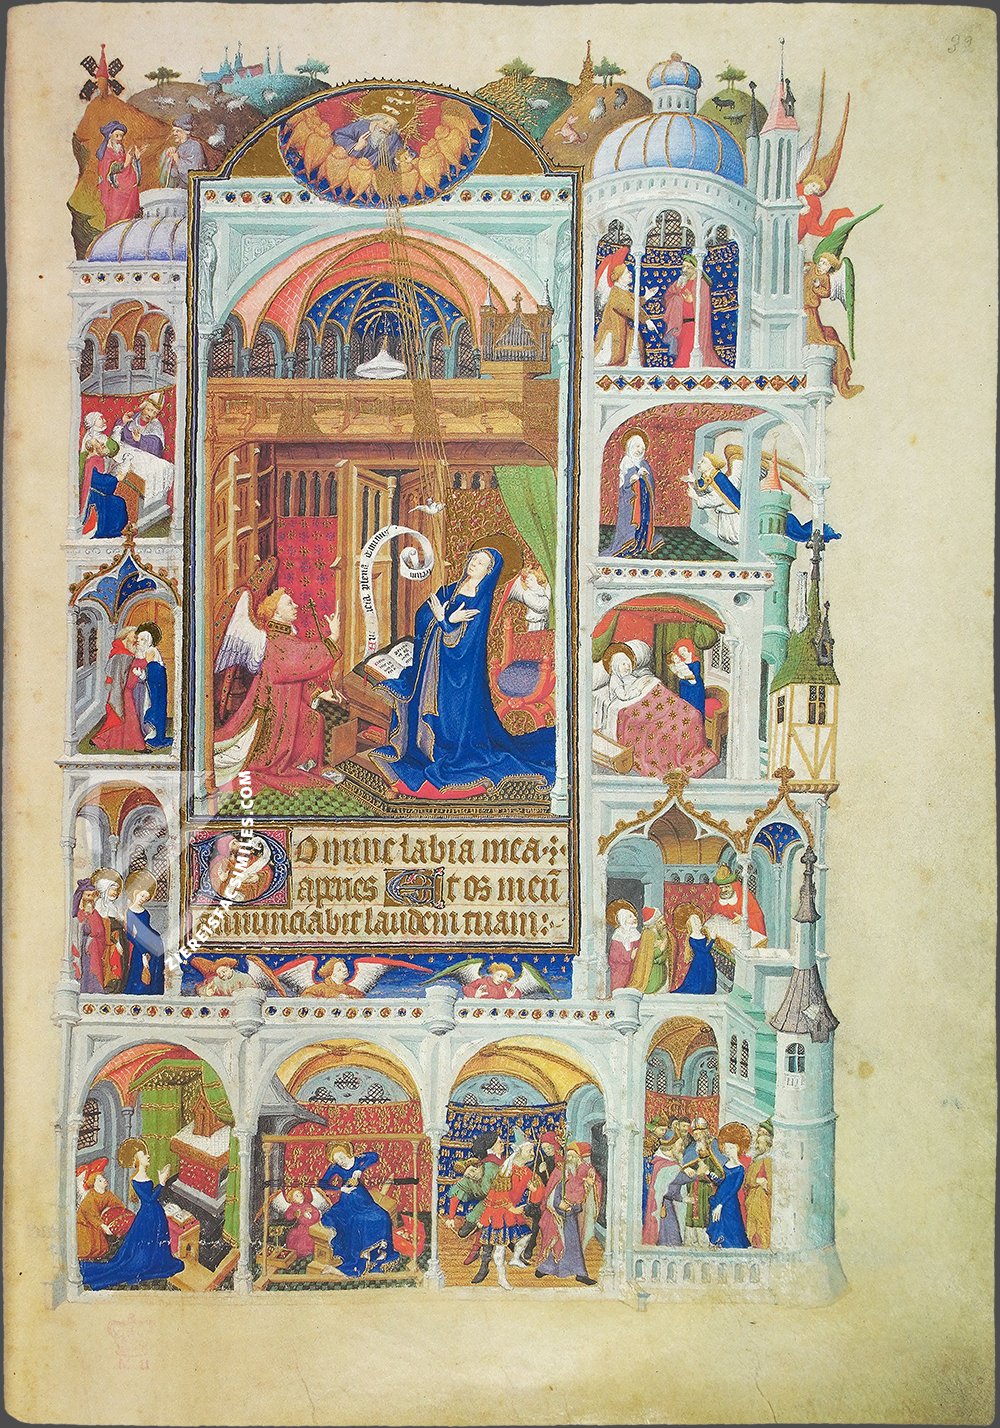 39
gracia plena dominus
Domine labia mea
aperies Et os meū
annunciabit laudem tuam:
ZIEREISFACSIMILES.COM